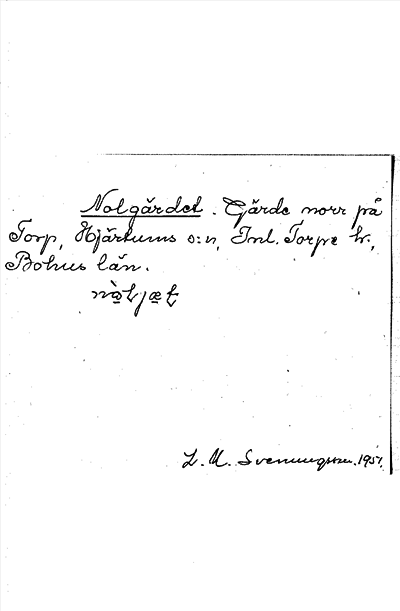 Nolgärdet. Gärde norr på
Torp, Hjärtums s:n, Inl. Torpe hr.,
Bohus län.
L. M. Svenungsson. 1951.